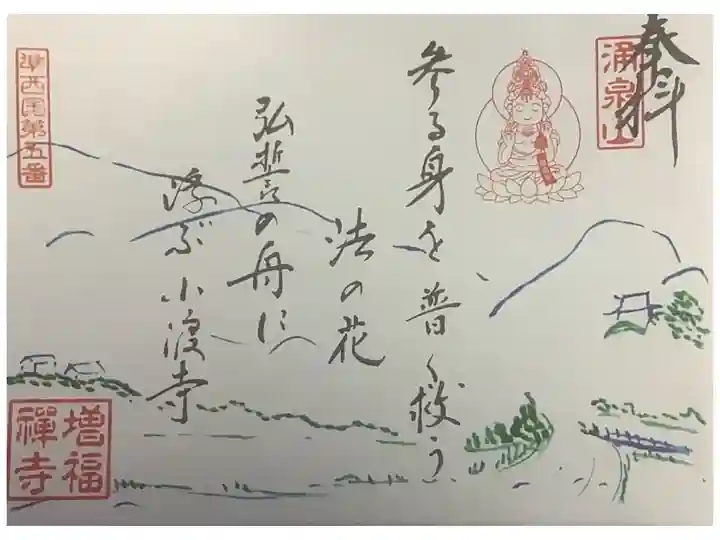 奉拝
涌泉山
参る身を普く救う
法の花
弘誓の舟に
浮ぶ小渡寺
準西国第五番
増福
禅寺